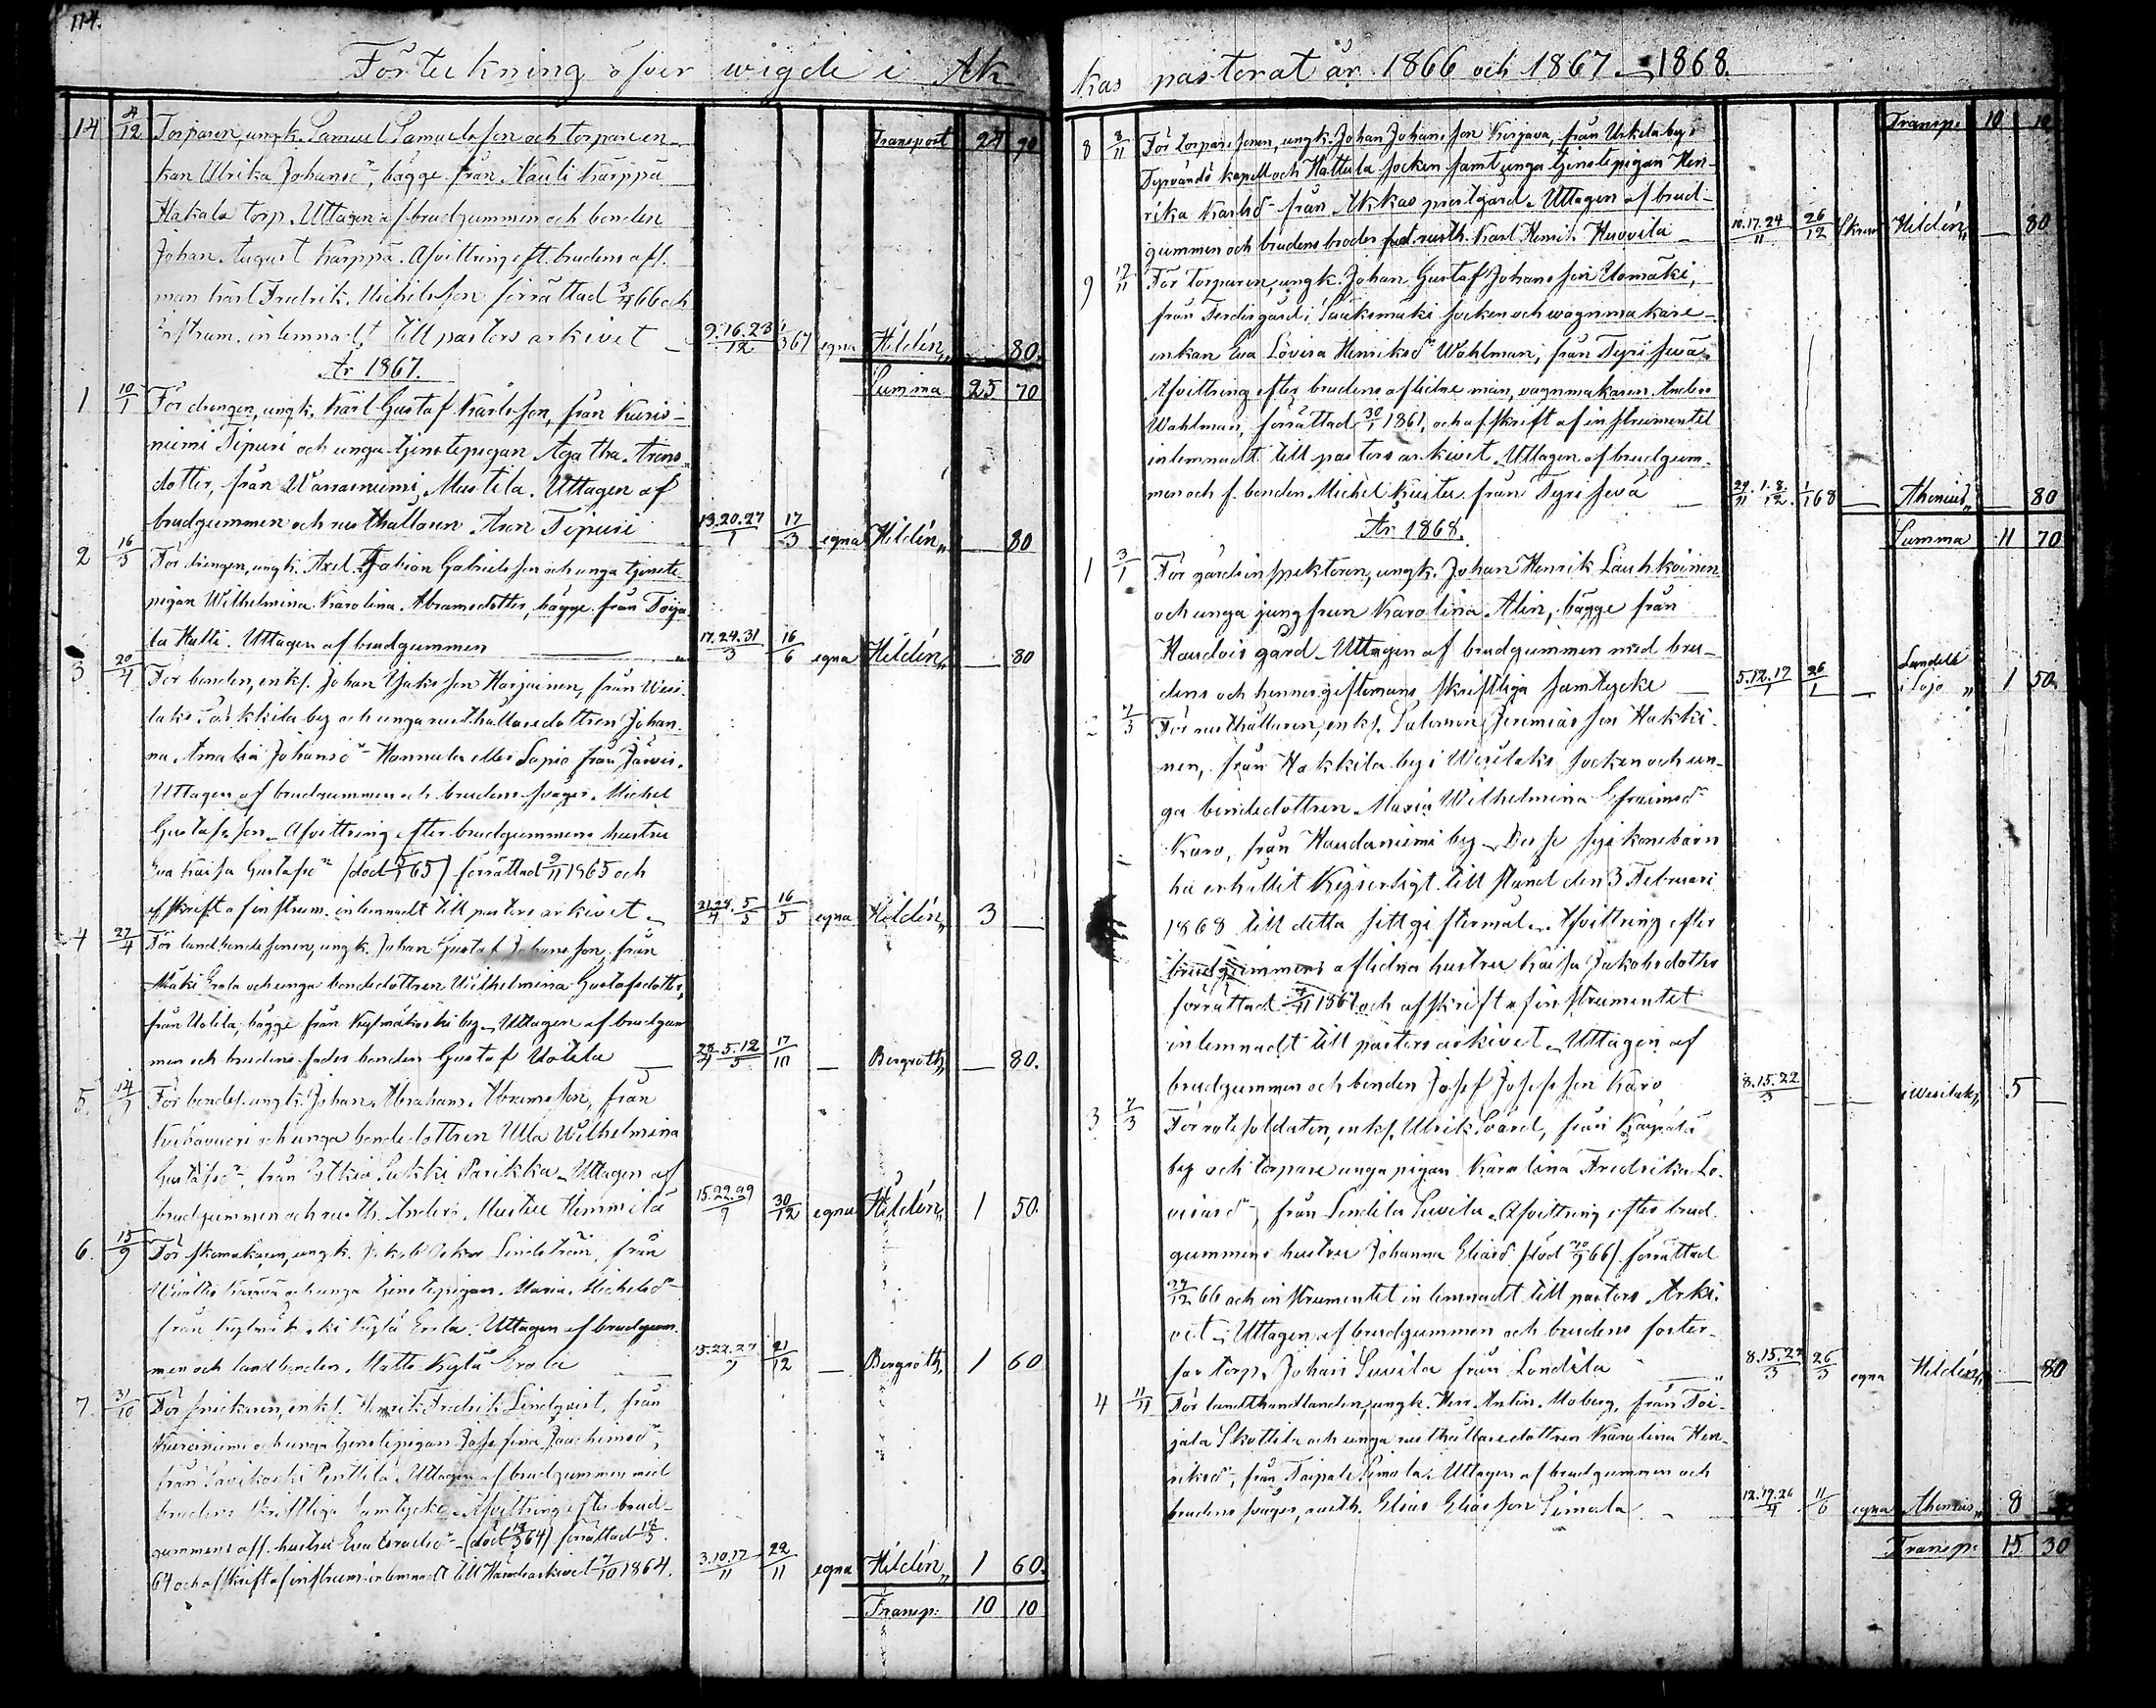 114.
Förteckning öfver wigde i Ak
kas pastorat år 1866 och 1867. 1868.
14 4/12 Torparen, ungk. Samuel Samuelsson och torpareen
kan Ulrika Johansd:r, bägge från Kärppä
Hakala torp. Uttagen af brudgummen och bonden
Johan August Kärppä. Afvittring eft. brudens afl.
man Karl Fredrik Michelsson förrättad 66 och
instrum. inlemnadt till pastors arkivet 9.16.23/12 1/3 67 egna Hildén 80.
Transport 24 90
Summa 25 70
År 1867.
1 10/1 För drengen, ungk. Karl Gustaf Karlsson, från Kuris-
niemi Tipuri och unga tjenstepigan Agatha Arons-
dotter, från Warrasniemi Mustila. Uttagen af
brudgummen och rusthållaren Aron Tipuri 13.20.27/1 17/3 egna Hildén 80
2 16/3 För drengen, ungk. Axel Fabian Gabrielsson och unga tjenste
pigan Wilhelmina Karolina Abramsdotter, bägge från Toija
la Hutti. Uttagen af brudgummen 17.24.31/3 16/6 egna Hildén 80
3 20/4 För bonden, enkl. Johan Isaksson Harjainen, från Wesi
laks by och unga rusthållaredottren Johan
na Amalia Johansd:r Hannula eller Lopio från Järvis.
Uttagen af brudgummen och brudens svåger Michel
Gustafsson. Afvittring efter brudgummens hustru
Eva Kaisa Gustafsd:r (död 65) förrättad 9/11 1865 och
afskrift af instrum. inlemnadt till pastors arkivet 21.28/4 5/5 16/5 egna Hildén 3
4 27/4 För landbondesonen, ungk. Johan Gustaf Johansson, från
Mäki Erola och unga bondedottren Wilhelmina Gustafsdotter,
från Uotila, bägge från Kylmäkoski by. Uttagen af brudgum
men och brudens fader bonden Gustaf Uotila 28/4 5.12/5 17/11 Bergroth 80.
5 14/9 För bondes. ungk. Johan Abraham Abramsson, från
och unga bondedottren Ulla Wilhelmina
Gustafsd:r, från Sukki Parikka. Uttagen af
brudgummen och rusth. Anders Hemmilä 15.22.29/9 30/12 egna Hildén 1 50.
6. 15/9 För skomakaren, ungk. Jakob Oskar Lindström, från
och unga tjenstepigan Maria Michelsd:r
från Kylmäkoski Kylä Erola. Uttagen af brudgum
men och landbonden Matts Kylä Erola 15.22.29/9 21/12 Bergroth 1 60
7. 31/10 För snickaren, enkl. Henrik Fredrik Lindqvist, från
Kurisniemi och unga tjenstepigan Josefina Joachimsd:r,
från Savikoski Penttilä. Uttagen af brudgummen med
brudens skriftliga samtycke. Afvittring efter brud-
gummens afl. hustru Eva (död 64) förrättad
64 och afskrift af instrum. inlemnadt till Häradsarkivet 7/10 1864. 3.10.17/11 22/11 egna Hildén 1 60.
Transp: 10 10
Transp: 10 10
8 8/11 För torparesonen, ungk. Johan Johansson Korjava, från Uskela by i
Tyrväntö kapell och Hattula socken samt unga tjenstepigan Hen-
rika Karlsd:r från Akkas prestgård. Uttagen af brud-
gummen och brudens broder rusth. Karl Henr. Huovila 10.17.24/11 26/12 Hildén 80
9 17/11 För torparen, ungk. Johan Gustaf Johansson Uomäki,
från gård i Sääksmäki socken och vagnmakare-
enkan Eva Lovisa Henriksd:r Wahlman, från Tyrisevä.
Afvittring efter brudens aflidne man, vagnmakaren Anders
Wahlman, förrättad 30/1 1861, och afskrift af instrumentet
inlemnadt till pastorsarkivet. Uttagen af brudgum-
men och f. bonden Michel Kustu från Tyrisevä 24/11 1.8/12 1/1 68 Athenius 80
Summa 11 70
År 1868.
1 3/1 För gårdsinspektoren, ungk. Johan Henrik Lauhkoinen
och unga jungfrun Karolina Alin, bägge från
Haudois gård. Uttagen af brudgummen med bru-
dens och hennes giftomans skriftliga samtycke 5.12.19/1 26/1 Lundell i Lojo 1 50.
2 7/3 För rusthållaren, enkl. Salomon Jeremiasson Hakki-
nen, från Hakkila by i Wesilaks socken och un-
ga bondedottren Maria Wilhelmina Efraimsd:r
Karo, från Haudaniemi by. Desse syskonebarn
ha erhållit Kejserligt tillstånd den 3 Februari
1868 till detta sitt giftermål. Afvittring efter
brudgummens aflidna hustru Kaisa Jakobsdotter
förrättad 1867 och afskrift af instrumentet
inlemnadt till pastorsarkivet. Uttagen af
brudgummen och bonden Josef Josefsson Karo 8.15.22/3 i Wesilaks 5
3 7/3 För rotesoldaten, enkl. Ulrik Svärd, från
by och torpare unga pigan Karolina Fredrika Lo-
visasd:r, från Londila Suvila. Afvittring efter brud
gummens hustru Johanna Eliasd:r (död 66) förrättad
29/12 66 och instrumentet inlemnadt till pastors Arki-
vet. Uttagen af brudgummen och brudens foster-
far torp. Johan Suvila från Londila 8.15.22/3 26/3 egna Hildén 80
4 11/4 För landthandlanden, ungk. Herr Antin Moberg, från Toi-
jala Skottila och unga rusthållaredottren Karolina Hen-
riksd:r, från Taipale Simola. Uttagen af brudgummen och
brudens svåger, rusth. Elias Eliasson Simola 12.19.26/4 11/6 egna Athenius 8
Transp: 15 30